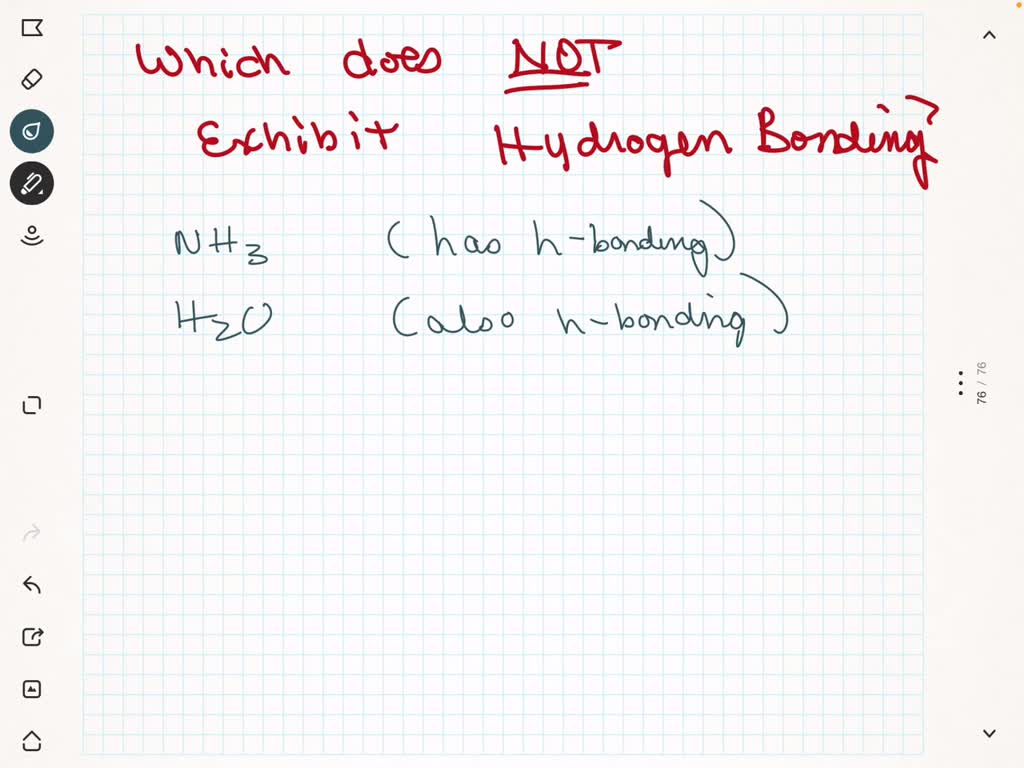 Which does NOT
Exhibit Hydrogen Bonding?
NH3 (has h-bonding)
H2O (also h-bonding)
76 / 76